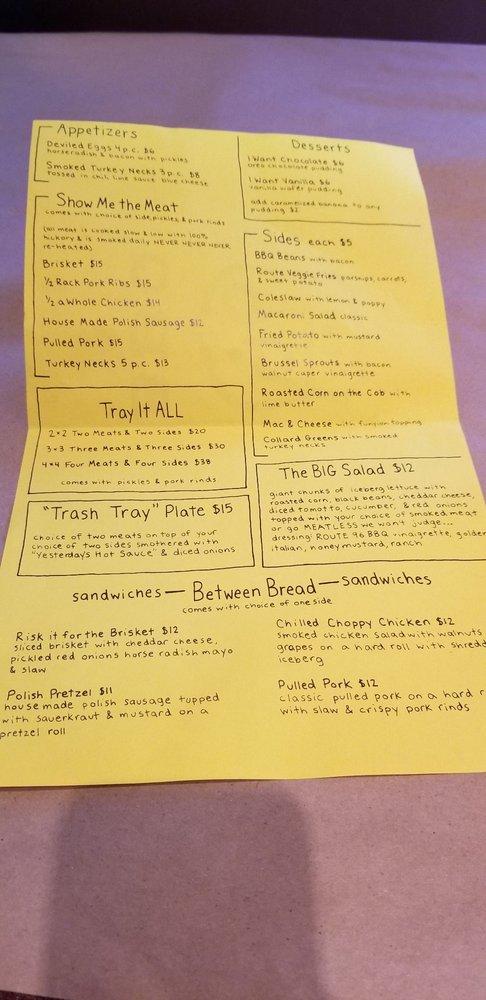 Appetizers
Deviled Eggs 4 p.c. $6
horseradish & bacon with pickles
Smoked Turkey Necks 3 p.c. $8
tossed in chili lime sauce blue cheese
Show Me the Meat
comes with choice of side, pickles, & pork rinds
(all meat is cooked slow & low with 100%
hickory & is smoked daily NEVER NEVER NEVER
re-heated)
Brisket $15
½ Rack Pork Ribs $15
½ a Whole Chicken $14
House Made Polish Sausage $12
Pulled Pork $15
Turkey Necks 5 p.c. $13
Tray It ALL
2×2 Two Meats & Two Sides $20
3×3 Three Meats & Three Sides $30
4×4 Four Meats & Four Sides $38
comes with pickles & pork rinds
"Trash Tray" Plate $15
choice of two meats on top of your
choice of two sides smothered with
"Yesterday's Hot Sauce" & diced onions
Desserts
I Want Chocolate $6
oreo chocolate pudding
I Want Vanilla $6
vanilla wafer pudding
add caramelized banana to any
pudding $2
Sides each $5
BBQ Beans with bacon
Route Veggie Fries parsnips, carrots,
& sweet potato
Coleslaw with lemon & poppy
Macaroni Salad classic
Fried Potato with mustard
vinaigrette
Brussel Sprouts with bacon
walnut caper vinaigrette
Roasted Corn on the Cob with
lime butter
Mac & Cheese with funyion topping
Collard Greens with smoked
turkey necks
The BIG Salad $12
giant chunks of iceberg lettuce with
roasted corn, black beans, cheddar cheese,
diced tomotto, cucumper, & red onions
topped with your choice of smoked meat
or go MEATLESS we won't judge...
dressing: ROUTE 96 BBQ vinaigrette, golden
italian, honey mustard, ranch
sandwiches — Between Bread — sandwiches
comes with choice of one side
Risk it for the Brisket $12
sliced brisket with cheddar cheese,
pickled red onions horse radish mayo
& slaw
Polish Pretzel $11
house made polish sausage topped
with sauerkraut & mustard on a
pretzel roll
Chilled Choppy Chicken $12
smoked chicken salad with walnuts
grapes on a hard roll with shredd
iceberg
Pulled Pork $12
classic pulled pork on a hard r
with slaw & crispy pork rinds